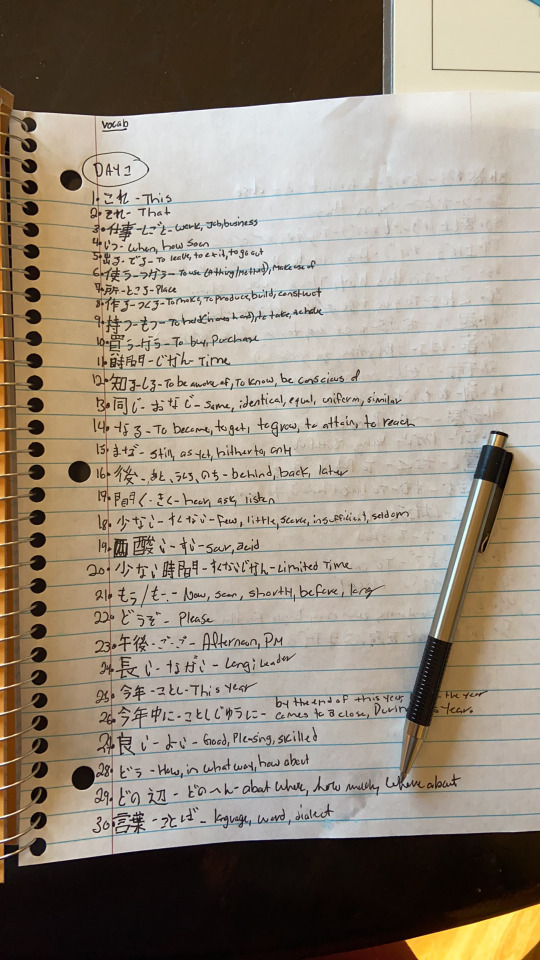 vocab
DAY 5
1. これ - This
2. それ - That
3. 仕事 - しごと - work, Job, business
4. いつ - when, how soon
5. 出る - でる - To leave, to exit, to go out
6. 使う - つかう - To use (A thing/method), Make use of
7. 所 - ところ - Place
8. 作る - つくる - To make, To produce, build, construct
9. 持つ - もつ - To hold (in ones hand), to take,
10. 買う - かう - To buy, Purchase
11. 時間 - じかん - Time
12. 知る - しる - To be aware of, To know, be conscious of
13. 同じ - おなじ - same, identical, equal, uniform, similar
14. なる - To become, to get, to grow, to attain, to reach
15. まだ - still, as yet, hitherto, only
16. 後 - あと, うしろ, のち - behind, back, later
17. 聞く - きく - hear, ask, listen
18. 少ない - すくない - Few, little, scarce, insufficient, seldom
19. 酸い - すい - sour, acid
20. 少ない時間 - すくないじかん - Limited Time
21. もう / も - Now, soon, shortly, before, long
22. どうぞ - Please
23. 午後 - ごご - Afternoon, PM
24. 長い - ながい - Long, Leader
25. 今年 - ことし - This year
26. 今年中に - ことしじゅうに - by the end of this year, the year comes to a close, During years
27. 良い - よい - Good, Pleasing, skilled
28. どう - How, in what way, how about
29. どの辺 - どのへん - about where, how much, where about
30. 言葉 - ことば - language, word, dialect